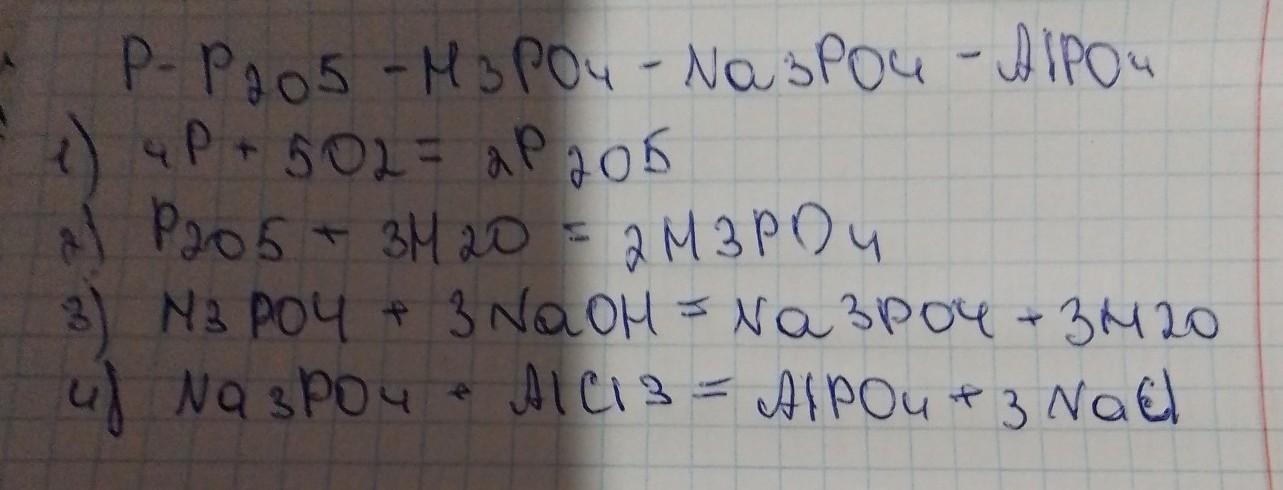 P - P2O5 - H3PO4 - Na3PO4 - AlPO4
1) 4P + 5O2 = 2P2O5
2) P2O5 + 3H2O = 2H3PO4
3) H3PO4 + 3NaOH = Na3PO4 + 3H2O
4) Na3PO4 + AlCl3 = AlPO4 + 3NaCl